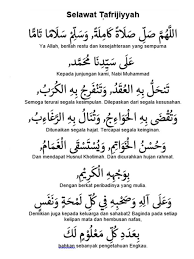 Selawat Tafrijiyyah
اللَّهُمَّ صَلِّ صَلَاةً كَامِلَةً، وَسَلِّمْ سَلَامًا تَامًّا
Ya Allah, berilah restu dan kesejahteraan yang sempurna
عَلَى سَيِّدِنَا مُحَمَّدٍ،
Kepada junjungan kami, Nabi Muhammad
تَنْحَلُّ بِهِ الْعُقَدُ، وَتَنْفَرِجُ بِهِ الْكُرَبُ،
Semoga terurai segala kesimpulan. Dilepaskan dari segala kesusahan.
وَتُقْضَى بِهِ الْحَوَائِجُ، وَتُنَالُ بِهِ الرَّغَائِبُ،
Ditunaikan segala hajat. Tercapai segala keinginan.
وَحُسْنُ الْخَوَاتِيْمِ، وَيُسْتَسْقَى الْغَمَامُ
Dan mendapat Husnul Khotimah. Dan dicurahkan hujan rahmat.
بِوَجْهِهِ الْكَرِيْمِ
Dengan berkat peribadinya yang mulia
وَعَلَى آلِهِ وَصَحْبِهِ فِي كُلِّ لَمْحَةٍ وَنَفَسٍ
Demikian juga kepada keluarga dan sahabat2 Baginda pada setiap kelipan mata dan hembusan nafas,
بِعَدَدِ كُلِّ مَعْلُوْمٍ لَكَ
bahkan sebanyak pengetahuan Engkau.